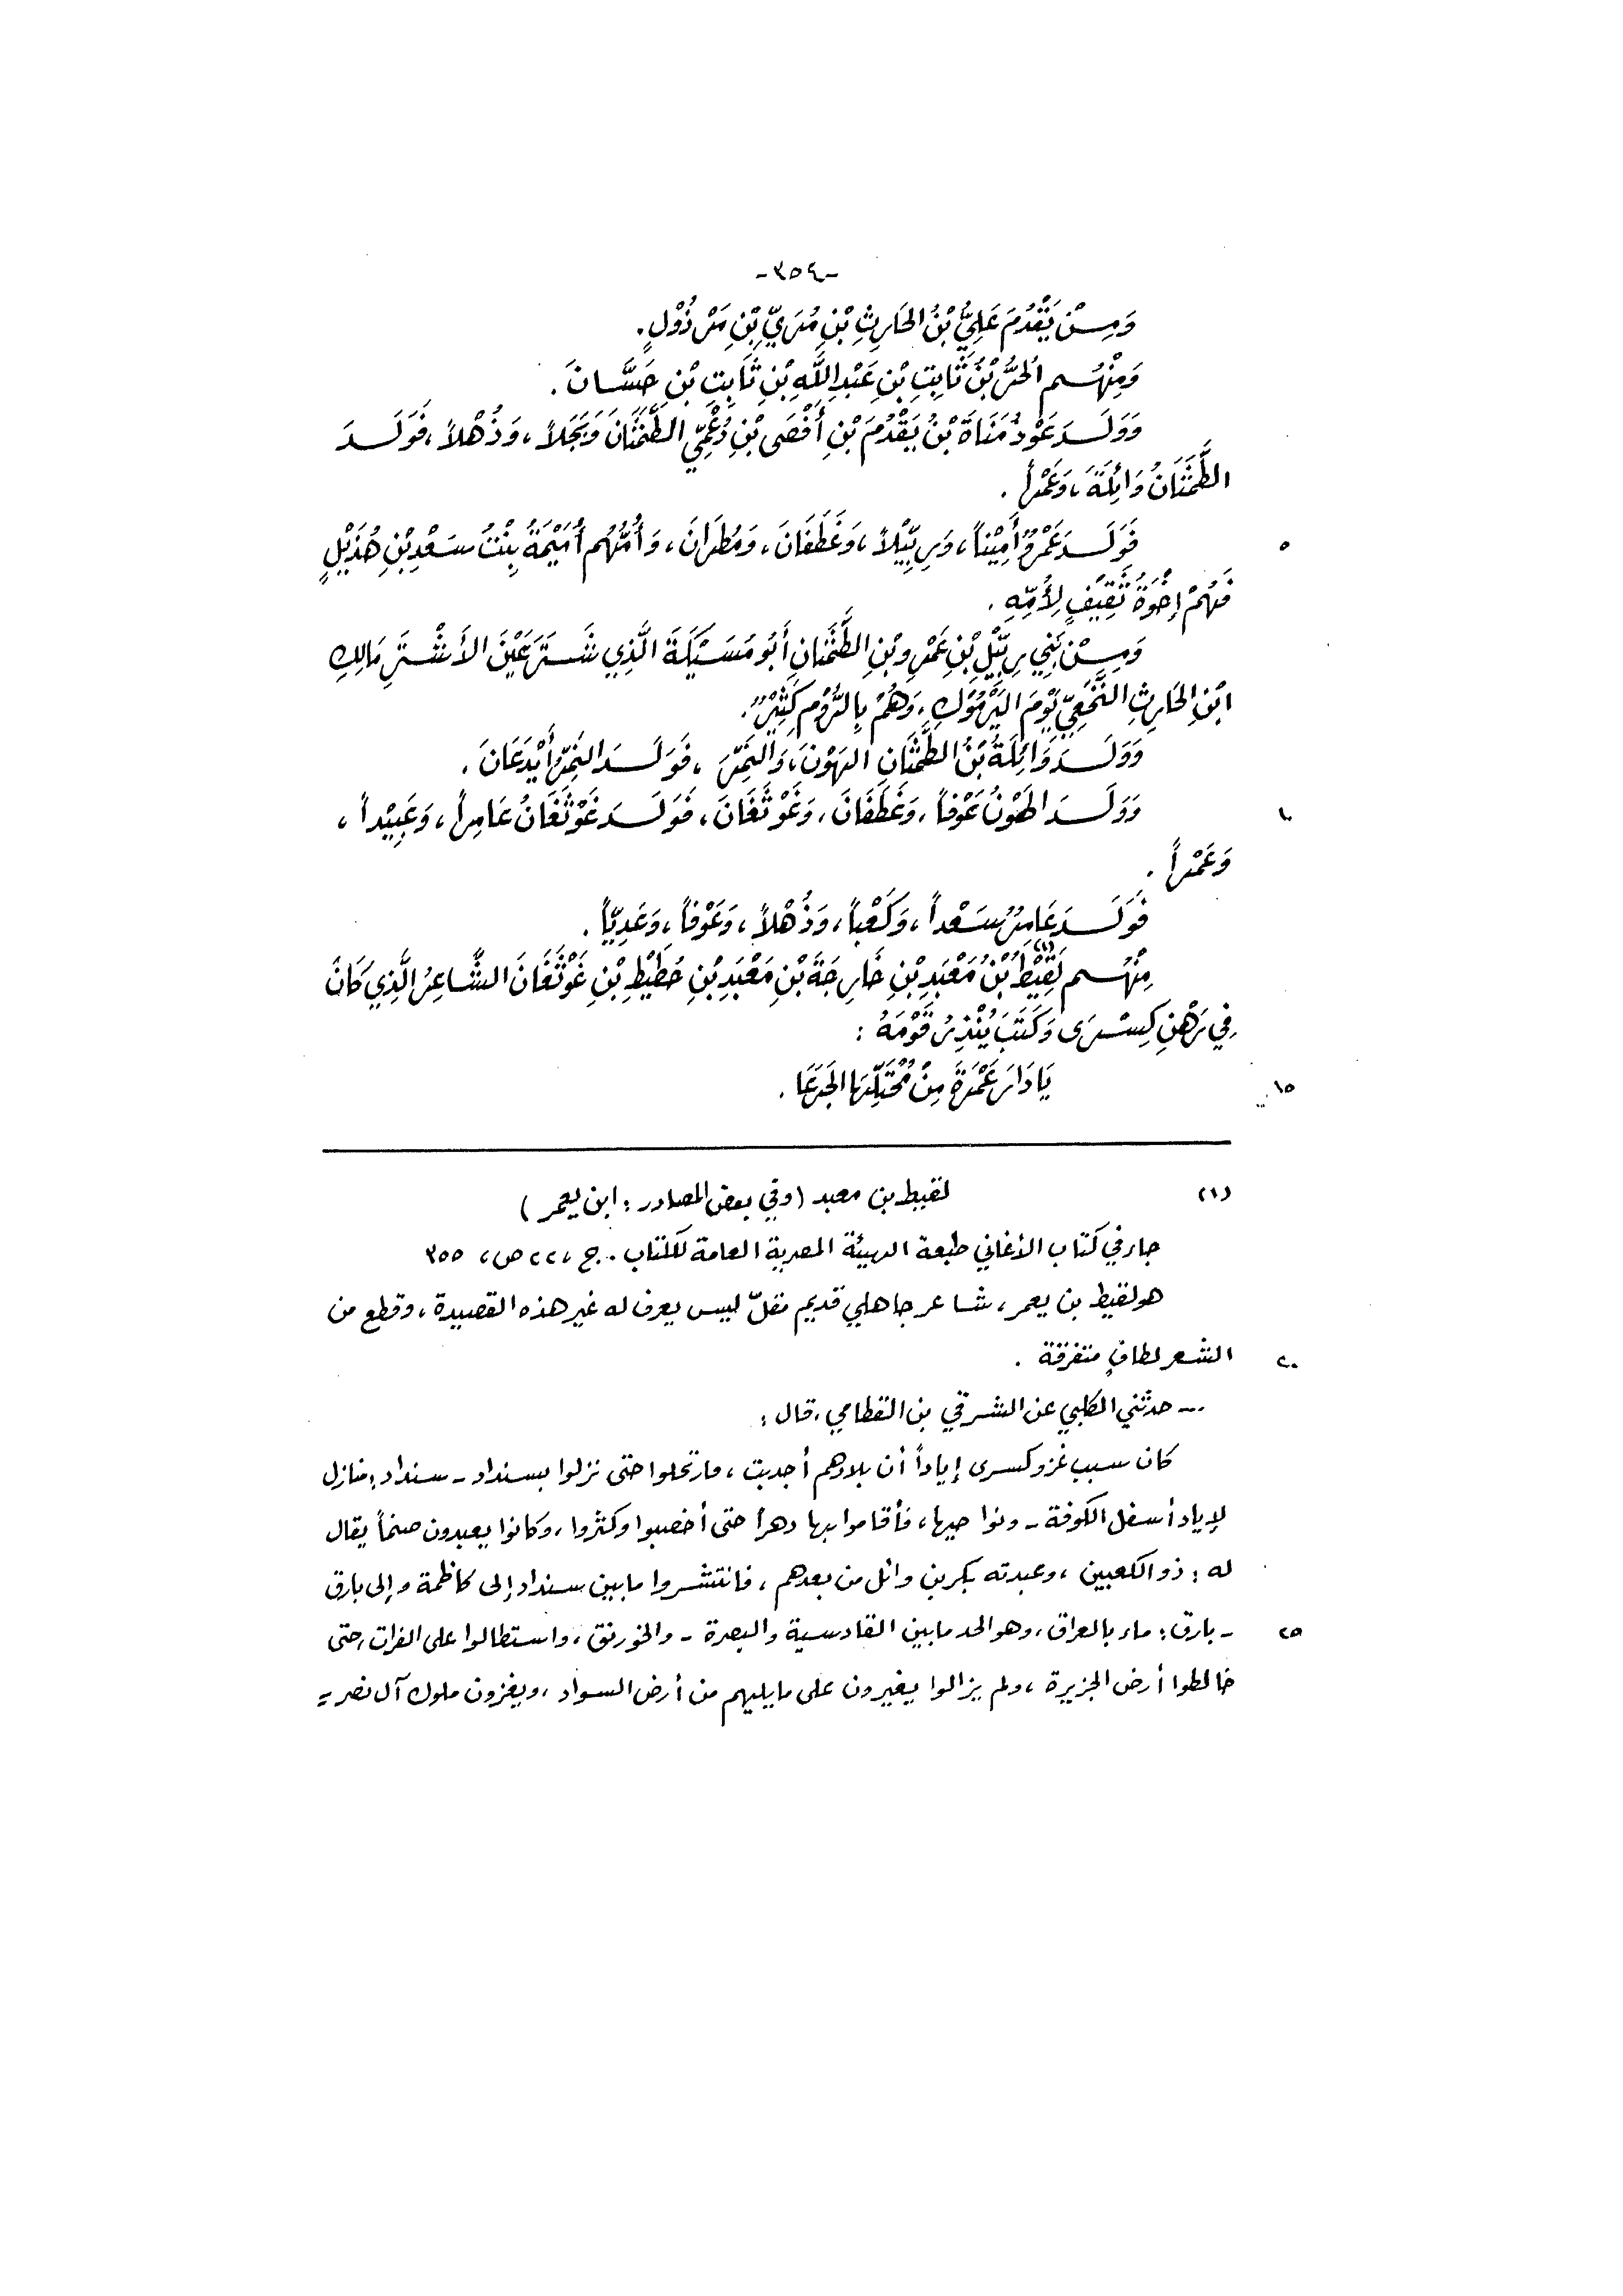 -٣٥٤-
وَمِنْ يَقْدُمَ عَلِيُّ بْنُ الحَارِثِ بْنِ مُرَيِّ بْنِ مَرْذُوْلٍ.
وَمِنْهُم الحُرُّ بْنُ ثَابِتِ بْنِ عَبْدِ اللَّهِ بْنِ ثَابِتِ بْنِ حَسَّانَ.
وَوَلَدَ عَوْذُ مَنَاةَ بْنُ يَقْدُمَ بْنِ أَفْصَى بْنِ دُعْمِيّ الطَّمَثَانَ وَبَجَلاً، وَذُهْلاً، فَوَلَدَ
الطَّمَثَانُ وَائِلَةَ، وَعَمْراً.
٥ فَوَلَدَ عَمْرٌو أَمِيْناً، وَرِبِّيْلاً، وَغَطَفَانَ، وَمُطَرَانَ، وَأُمُّهُم أُمَيْمَةُ بِنْتُ سَعْدِ بْنِ هُذَيْلٍ
فَهُمْ إِخْوَةُ ثَقِيْفٍ لِأُمِّهِ.
وَمِنْ بَنِي رِبِّيْلِ بْنِ عَمْرِو بْنِ الطَّمَثَانِ أَبُو مُسَيْكَةَ الَّذِي شَتَرَ عَيْنَ الأَشْتَرِ مَالِكِ
ابْنِ الحَارِثِ النَّخَعِيِّ يَوْمَ اليَرْمُوْكِ، وَهُمْ بِالرُّوْمِ كَثِيْرٌ.
وَوَلَدَ وَائِلَةُ بْنُ الطَّمَثَانِ الهَوْنَ، وَالنَّمِرَ، فَوَلَدَ النَّمِرُ أَيْدَعَانَ.
١٠ وَوَلَدَ الهَوْنُ عَوْفاً، وَغَطَفَانَ، وَغَوْثَعَانَ، فَوَلَدَ غَوْثَعَانُ عَامِراً، وَعَبِيْداً،
وَعَمْراً.
فَوَلَدَ عَامِرٌ سَعْداً، وَكَعْباً، وَذُهْلاً، وَعَوْفاً، وَعَدِيّاً.
مِنْهُم لَقِيْطُ(١) بْنُ مَعْبَدِ بْنِ خَارِجَةَ بْنِ مَعْبَدِ بْنِ حُطَيْطِ بْنِ غَوْثَعَانَ الشَّاعِرُ الَّذِي كَانَ
فِي رَهْنِ كِسْرَى وَكَتَبَ يُنْذِرُ قَوْمَهُ:
١٥ يَا دَارَ عَمْرَةَ مِنْ مُحْتَلِّهَا الجَرَعَا.
(١) لقيط بن معبد (وفي بعض المصادر: ابن يعمر)
جاء في كتاب الأغاني طبعة الهيئة المصرية العامة للكتاب. ج ٢٢، ص، ٣٥٥
هو لقيط بن يعمر، شاعر جاهلي قديم مقلّ ليس يعرف له غير هذه القصيدة، وقطع من
٢٠ الشعر لطافٍ متفرقة.
... حدثني الكلبي عن الشرقي بن القطامي، قال:
كان سبب غزو كسرى إياداً أن بلادهم أجدبت، فارتحلوا حتى نزلوا بسنداد - سنداد: منازل
لإياد أسفل الكوفة - ونواحيها، فأقاموا بها دهراً حتى أخصبوا وكثروا، وكانوا يعبدون صنماً يقال
له: ذو الكعبين، وعبدته بكر بن وائل من بعدهم، فانتشروا ما بين سنداد إلى كاظمة وإلى بارق
٢٥ - بارق: ماء بالعراق، وهو الحد ما بين القادسية والبصرة - والخورنق، واستطالوا على الفرات، حتى
خالطوا أرض الجزيرة، ولم يزالوا يغيرون على ما يليهم من أرض السواد، ويغزون ملوك آل نصر =